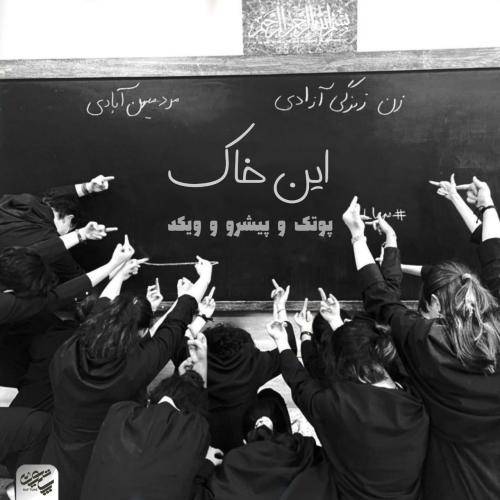 بسم الله الرحمن الرحیم
زن زندگی آزادی
مرد میهن آبادی
این خاک
پوتک و پیشرو و ویکد